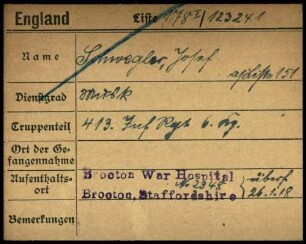 England Liste 178 I/123241
Name Schwegler, Josef
a/Liste 151
Dienstgrad Musk
Truppenteil 413. Inf Rgt 6. Kg.
Ort der Ge-
fangennahme
Aufenthalts-
ort
Brocton War Hospital
N. 2948
Brocton, Staffordshire
überf
26.1.18
Bemerkungen